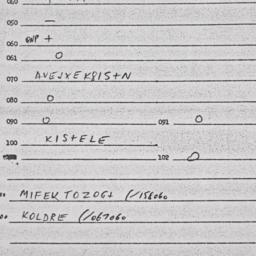 050 —
060 GNP +
061 O
070 AVEJXEKBIS+N
080 O
090 O 091 O
100 KISTELE
102 O
MIFEK TOZOGT (/156060
KOLDRE (/067060